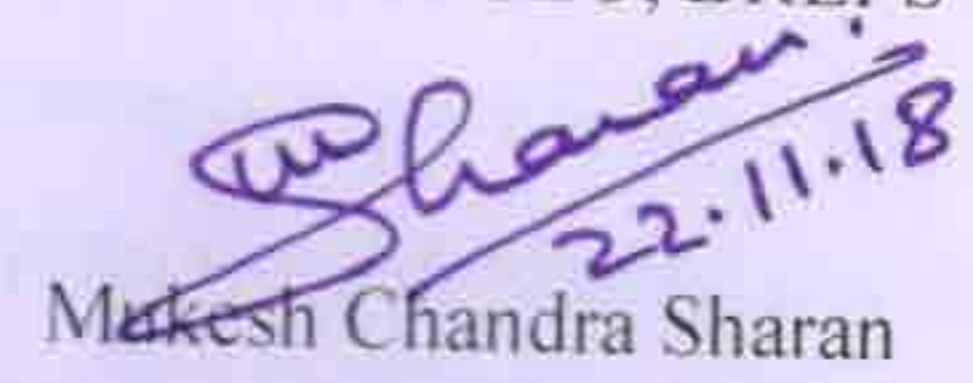 Sharan
22.11.18
Mukesh Chandra Sharan